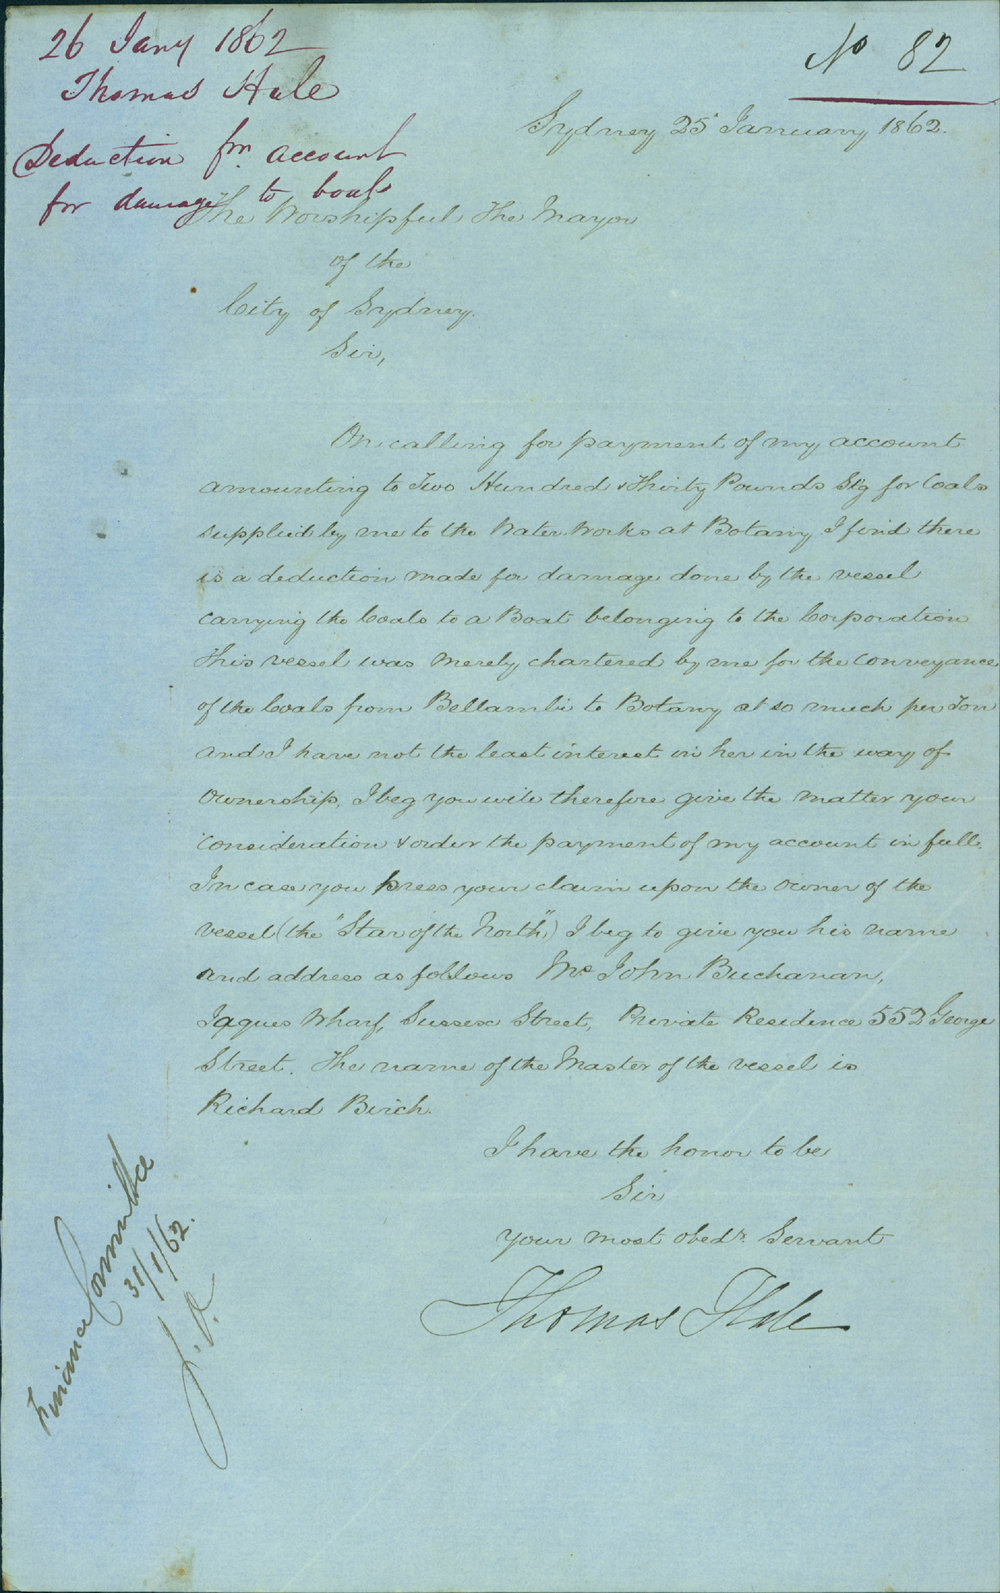 26 Jany 1862
Thomas Hale
Deduction fm account
for damage to boat
No 82
Sydney 25 January 1862.
The Worshipful The Mayor
of the
City of Sydney.
Sir,
On calling for payment of my account
amounting to Two Hundred & Thirty Pounds Stg for Coals
supplied by me to the Water Works at Botany I find there
is a deduction made for damage done by the vessel
carrying the Coals to a Boat belonging to the Corporation
This vessel was merely chartered by me for the conveyance
of the Coals from Bellambi to Botany at so much per Ton
and I have not the least interest in her in the way of
Ownership, I beg you will therefore give the matter your
consideration & order the payment of my account in full.
In case you press your claim upon the owner of the
vessel (the "Star of the North") I beg to give you his name
and address as follows Mr John Buchanan,
Jaques Wharf, Sussex Street, Private Residence 552 George
Street. The name of the Master of the vessel is
Richard Birch.
I have the honor to be
Sir
your most obedt. Servant
Thomas Hale
Finance Committee
31/1/62.